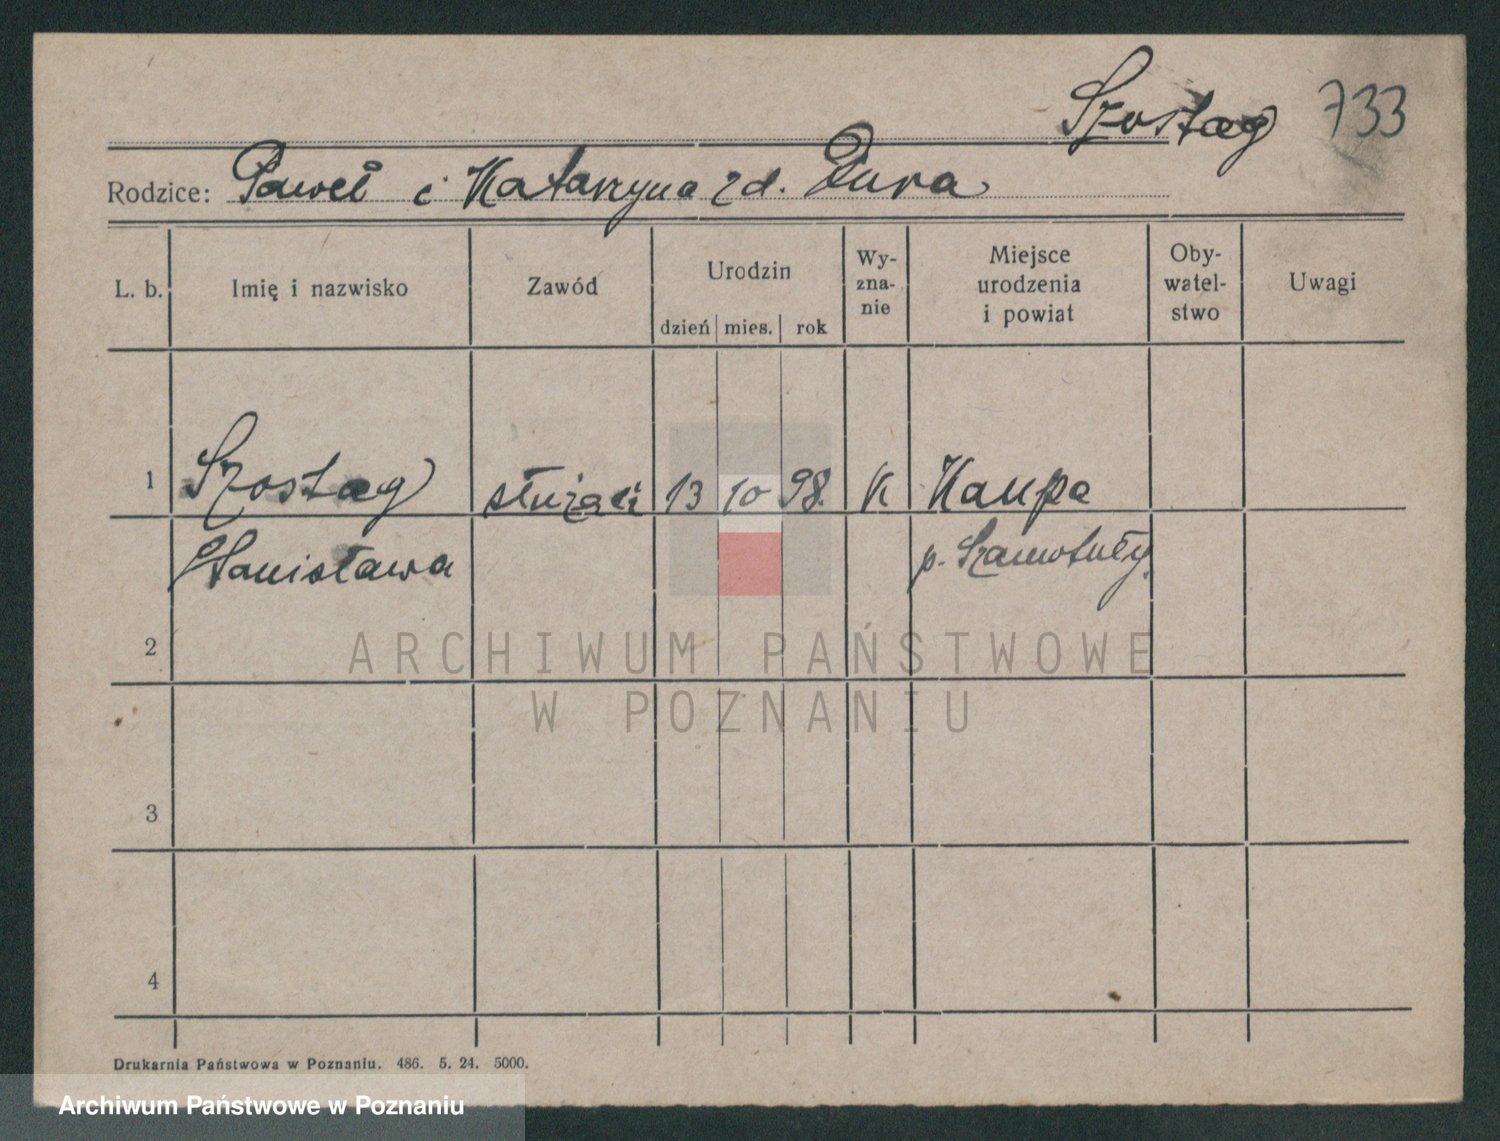 Szostag 733
Rodzice: Paweł i Katarzyna zd. Żura
L. b. Imię i nazwisko Zawód Urodzin dzień mies. rok Wy-zna-nie Miejsce urodzenia i powiat Oby-watel-stwo Uwagi
1 Szostag służąc. 13 10 98. K Kaupa
Stanisława p. Szamotuły
2
ARCHIWUM PAŃSTWOWE
W POZNANIU
3
4
Drukarnia Państwowa w Poznaniu. 486. 5. 24. 5000.
Archiwum Państwowe w Poznaniu